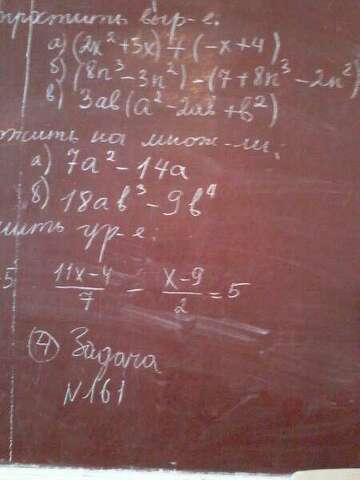 простить выр-е.
а) (2x² + 5x) + (-x + 4)
б) (8n³ - 3n²) - (7 + 8n³ - 2n²)
в) 3ab(a² - 2ab + b²)
ожить на множ-ли:
а) 7a² - 14a
б) 18ab³ - 9b⁴
шить ур-е:
5 (11x-4)/7 - (x-9)/2 = 5
④ Задача
N161